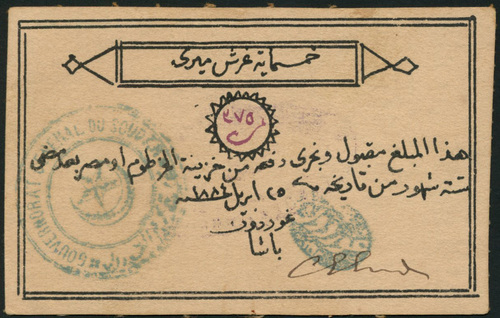 خمسماية غرش ميرى
٢٧٥
هذا المبلغ مقبول ويجرى دفعه من خزينة الخرطوم او مصر بعد مضى
ستة شهور من تاريخه ٢٥ ابريل ١٨٨٤ سنه
غوردون
باشا
GOUVERNORAT GENERAL DU SOUDAN